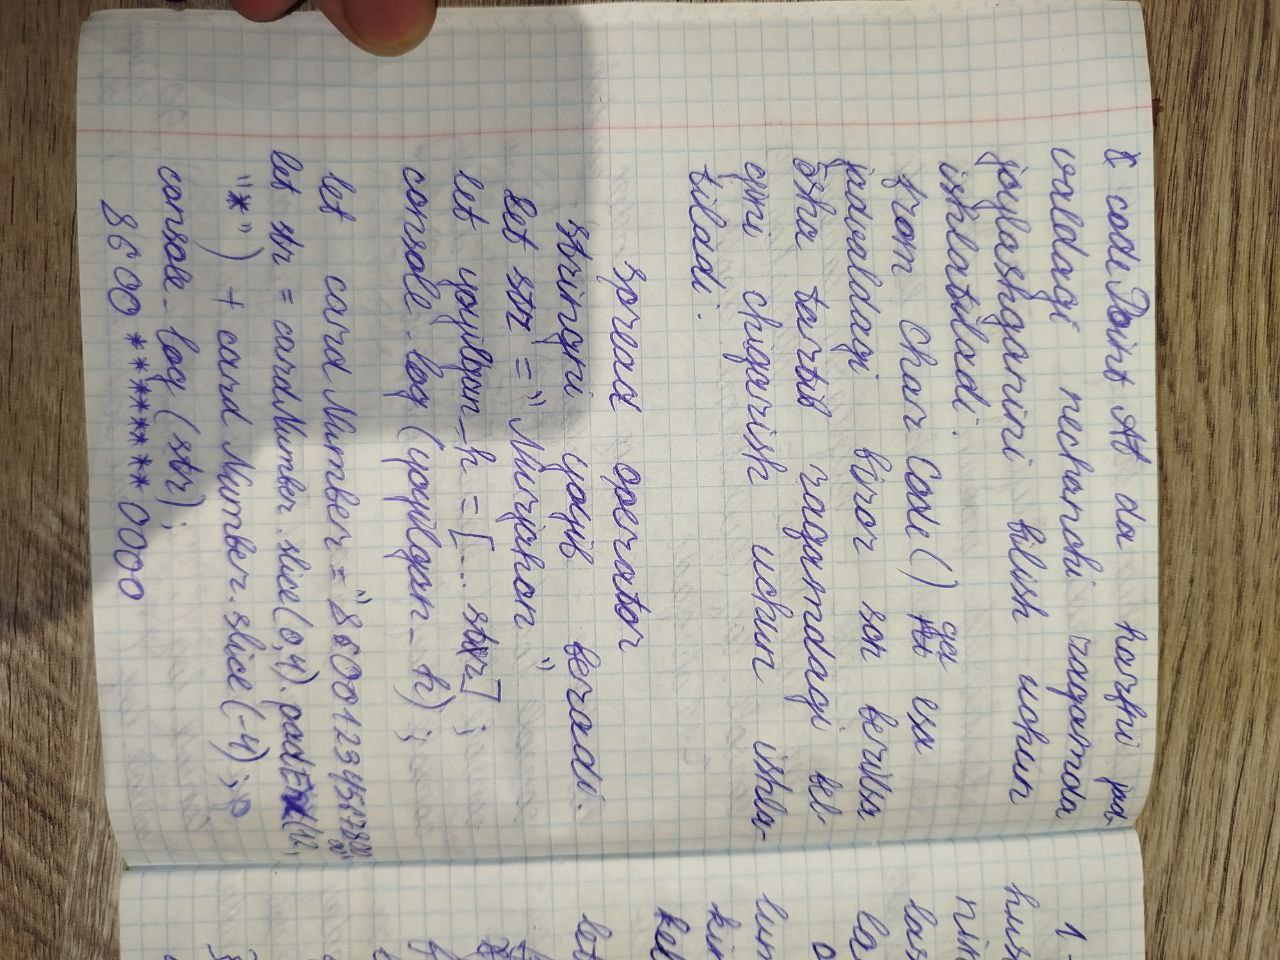 codePointAt da harfni jad-
valdagi nechanchi raqamda
joylashganini bilish uchun
ishlatiladi.
from Char Code() ga esa
jadvaldagi biror son berilsa
o'sha tartib raqamdagi bel-
gini chiqarish uchun ishla-
tiladi.
spread operator
stringni yoyib beradi.
let str = "Nurjahon"
let yoyilgan-h = [... str];
console.log (yoyilgan-h);
let card Number = "8600123456780000"
let str = cardNumber.slice(0,4).padEnd(12,
"*") + card Number.slice(-4);
console.log (str);
8600 ******** 0000
1-
hus
nin
las
la
lum
kin
kel
let